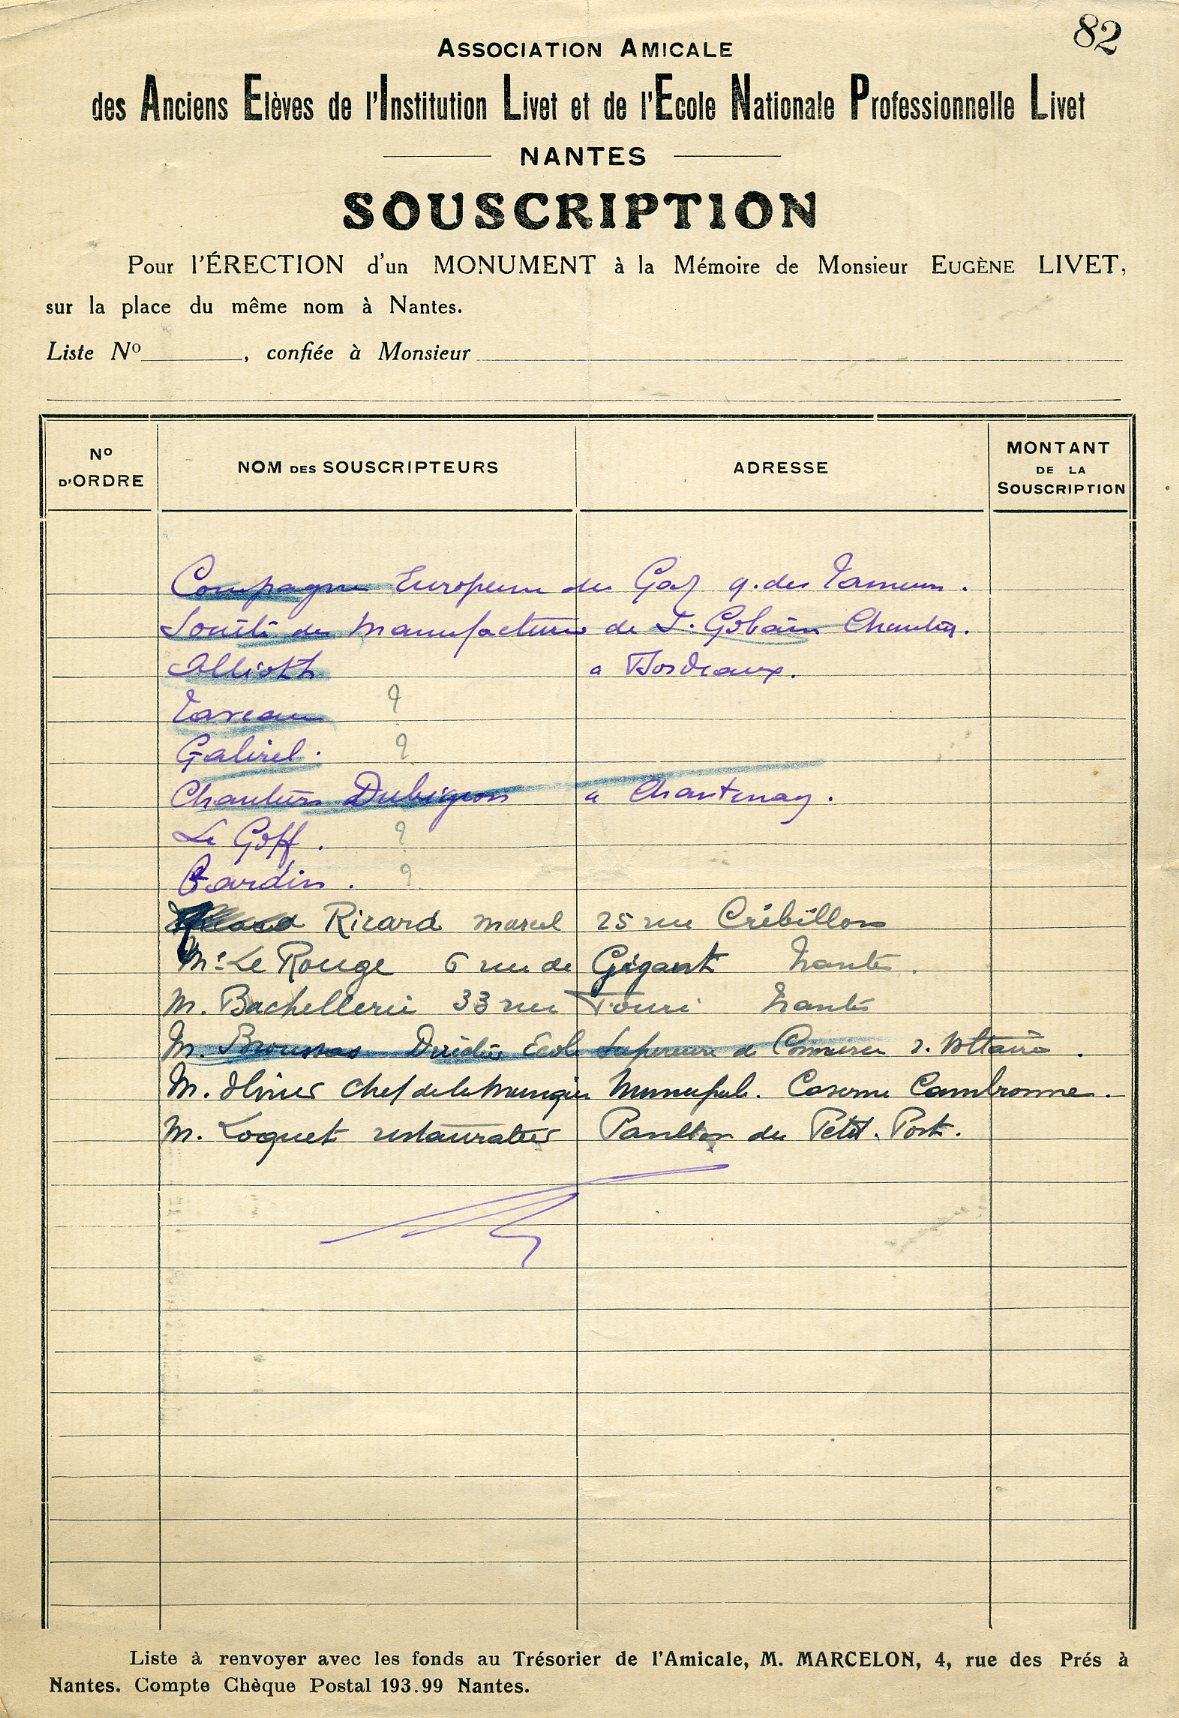 82
ASSOCIATION AMICALE
des Anciens Elèves de l'Institution Livet et de l'Ecole Nationale Professionnelle Livet
NANTES
SOUSCRIPTION
Pour l'ÉRECTION d'un MONUMENT à la Mémoire de Monsieur EUGÈNE LIVET,
sur la place du même nom à Nantes.
Liste No , confiée à Monsieur
No D'ORDRE NOM DES SOUSCRIPTEURS ADRESSE MONTANT DE LA SOUSCRIPTION
Compagnie Européenne du Gaz q. des Tanneurs.
Société des Manufactures de St Gobain Chantenay.
Allioth a Bordeaux.
Taveau ?
Gabirel. ?
Chantiers Dubigeon a Chantenay.
Le Goff. ?
Bardin. ?
Ricard Marcel 25 rue Crébillon
Mr Le Rouge 6 rue de Gigant Nantes.
M. Bachellerie 33 rue Nantes
M. Directeur Ecole Supérieure de Commerce r. Voltaire.
M. Olivier Chef de la Musique Municipale. Caserne Cambronne.
M. Loquet restaurateur Pavillon du Petit. Port.
Liste à renvoyer avec les fonds au Trésorier de l'Amicale, M. MARCELON, 4, rue des Prés à
Nantes. Compte Chèque Postal 193.99 Nantes.